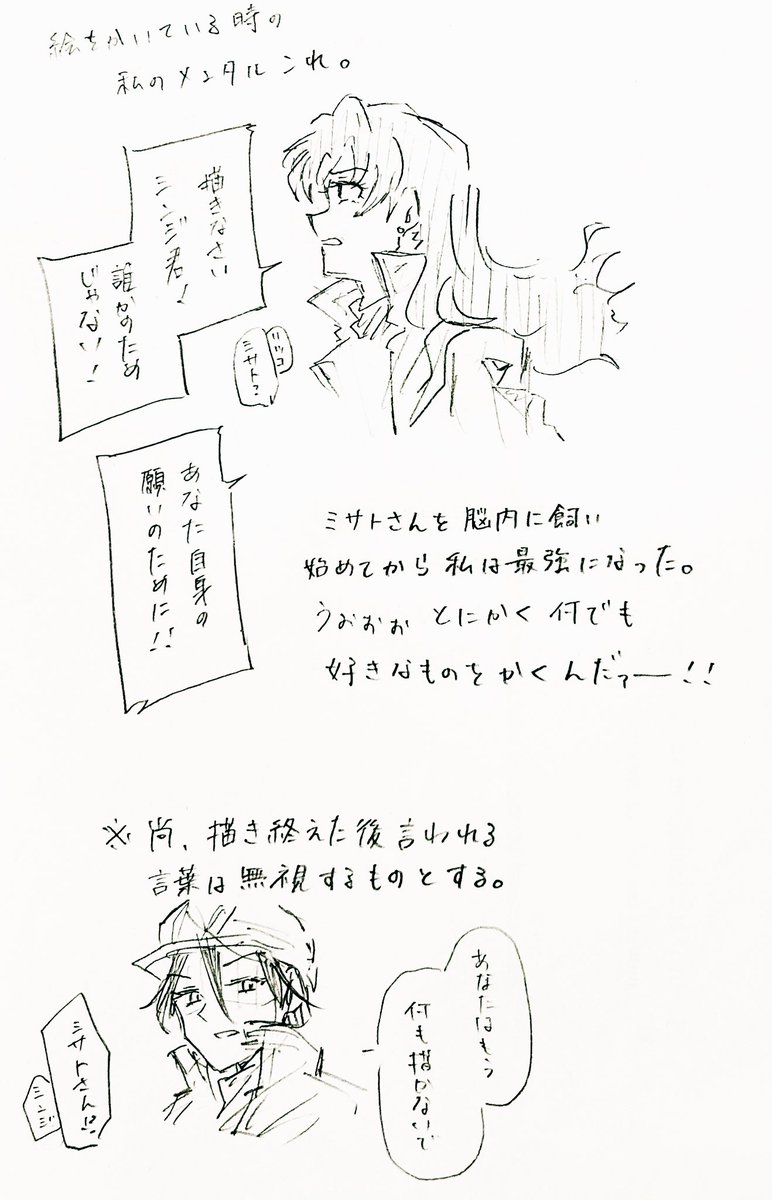 絵をかいている時の
私のメンタルこれ。
描きなさい
シンジ君！
誰かのため
じゃない！
リツコ
ミサト？
あなた自身の
願いのために!!
ミサトさんを脳内に飼い
始めてから私は最強になった。
うおぉぉ とにかく何でも
好きなものをかくんだァー!!
※尚、描き終えた後言われる
言葉は無視するものとする。
あなたはもう
何も描かないで
ミサトさん!?
シンジ